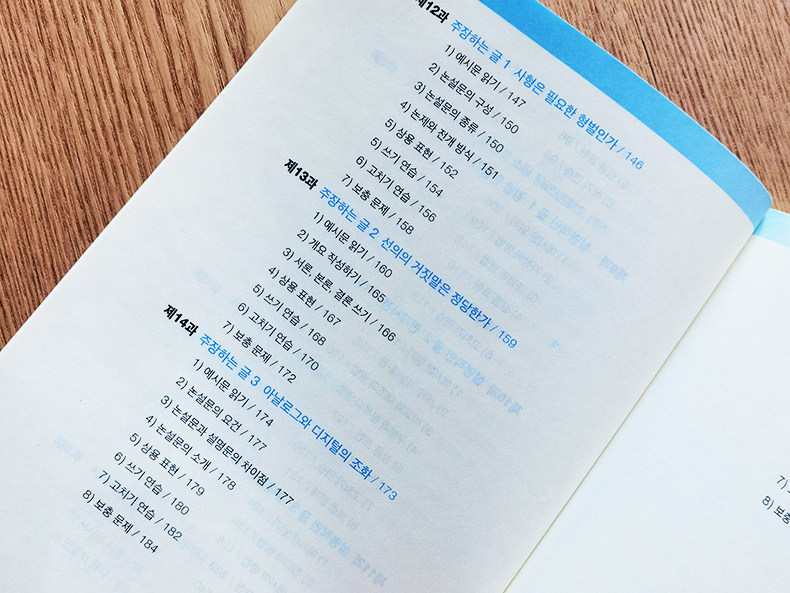 제12과 주장하는 글 1 사형은 필요한 형벌인가 / 146
1) 예시문 읽기 / 147
2) 논설문의 구성 / 150
3) 논설문의 종류 / 150
4) 논제와 전개 방식 / 151
5) 상용 표현 / 152
5) 쓰기 연습 / 154
6) 고치기 연습 / 156
7) 보충 문제 / 158
제13과 주장하는 글 2 선의의 거짓말은 정당한가 / 159
1) 예시문 읽기 / 160
2) 개요 작성하기 / 165
3) 서론, 본론, 결론 쓰기 / 166
4) 상용 표현 / 167
5) 쓰기 연습 / 168
6) 고치기 연습 / 170
7) 보충 문제 / 172
제14과 주장하는 글 3 아날로그와 디지털의 조화 / 173
1) 예시문 읽기 / 174
2) 논설문의 요건 / 177
3) 논설문과 설명문의 차이점 / 177
4) 논설문의 소개 / 178
5) 상용 표현 / 179
6) 쓰기 연습 / 180
7) 고치기 연습 / 182
8) 보충 문제 / 184
7)
8) 보충